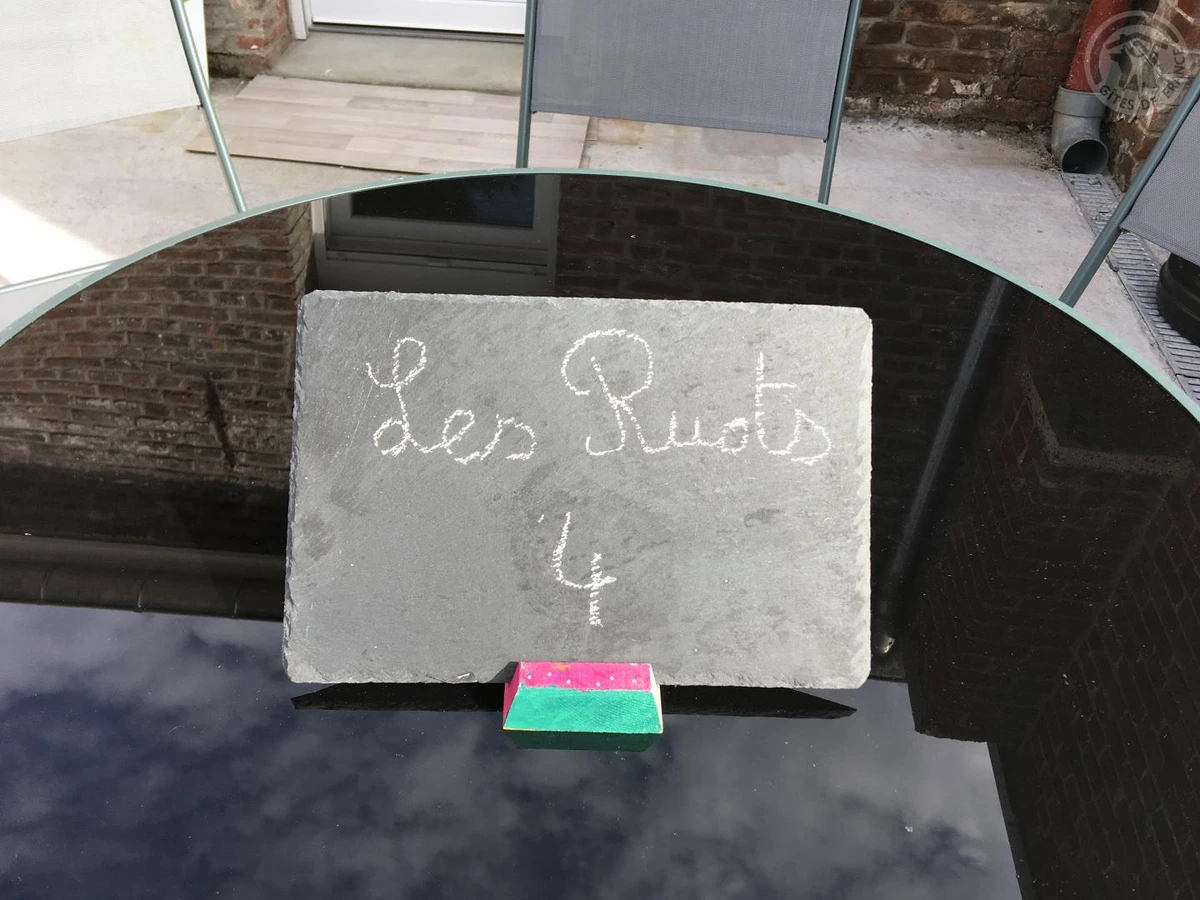 Les Ruots
4
GITES DE FRANCE